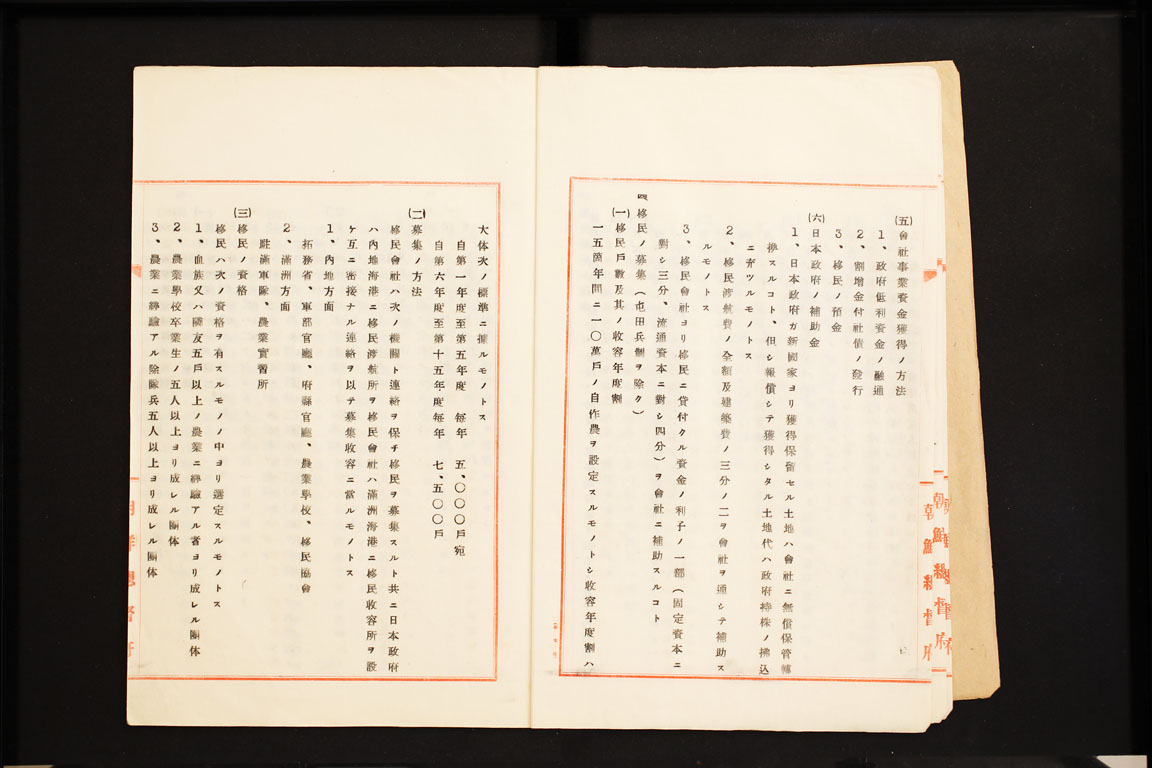 (五)會社事業資金獲得ノ方法
1、政府低利資金ノ融通
2、割增金付社債ノ發行
3、移民ノ預金
(六)日本政府ノ補助金
1、日本政府ガ新國家ヨリ獲得保留セル土地ハ會社ニ無償保管轉
渉スルコト、但シ報償シテ獲得シタル土地代ハ政府持株ノ拂込
ニ充ツルモノトス
2、移民渡航費ノ全額及建築費ノ三分ノ二ヲ會社ヲ通シテ補助ス
ルモノトス
3、移民會社ヨリ移民ニ貸付クル資金ノ利子ノ一部(固定資本ニ
對シ三分、流通資本ニ對シ四分)ヲ會社ニ補助スルコト
四、移民ノ募集(屯田兵制ヲ除ク)
(一)移民戶數及其ノ收容年度割
一五箇年間ニ一〇萬戶ノ自作農ヲ設定スルモノトシ收容年度割ハ
大体次ノ標準ニ據ルモノトス
自第一年度至第五年度 每年 五、〇〇〇戶宛
自第六年度至第十五年度每年 七、五〇〇戶
(二)募集ノ方法
移民會社ハ次ノ機關ト連絡ヲ保チ移民ヲ募集スルト共ニ日本政府
ハ內地海港ニ移民渡航所ヲ移民會社ハ滿洲海港ニ移民收容所ヲ設
ケ互ニ密接ナル連絡ヲ以テ募集收容ニ當ルモノトス
1、內地方面
拓務省、軍部官廳、府縣官廳、農業學校、移民協會
2、滿洲方面
駐滿軍隊、農業實習所
(三)移民ノ資格
移民ハ次ノ資格ヲ有スルモノノ中ヨリ選定スルモノトス
1、血族又ハ隣友五戶以上ノ農業ニ經驗アル者ヨリ成レル團体
2、農業學校卒業生ノ五人以上ヨリ成レル團体
3、農業ニ經驗アル除隊兵五人以上ヨリ成レル團体
朝鮮總督府
朝鮮總督府
朝鮮總督府